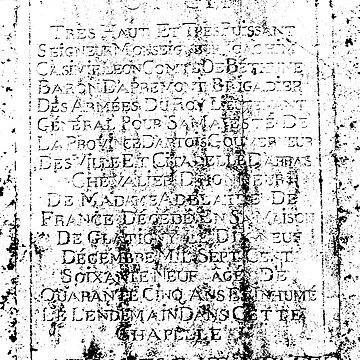 TRES HAUT ET TRES PUISSANT
SEIGNEUR MONSEIGNEUR JOACHIM
CASIMIR LEON COMTE DE BETHUNE
BARON D'APREMONT BRIGADIER
DES ARMÉES DU ROY LIEUTENANT
GÉNÉRAL POUR SA MAJESTÉ DE
LA PROVINCE D'ARTOIS GOUVERNEUR
DES VILLE ET CITADELLE D'ARRAS
CHEVALIER D'HONNEUR
DE MADAME ADELAIDE DE
FRANCE DÉCÉDÉ EN SA MAISON
DE GLATIGNY LE DIX NEUF
DÉCEMBRE MIL SEPT CENT
SOIXANTE NEUF AGÉ DE
QUARANTE CINQ ANS ET INHUMÉ
LE LENDEMAIN DANS CETTE
CHAPELLE